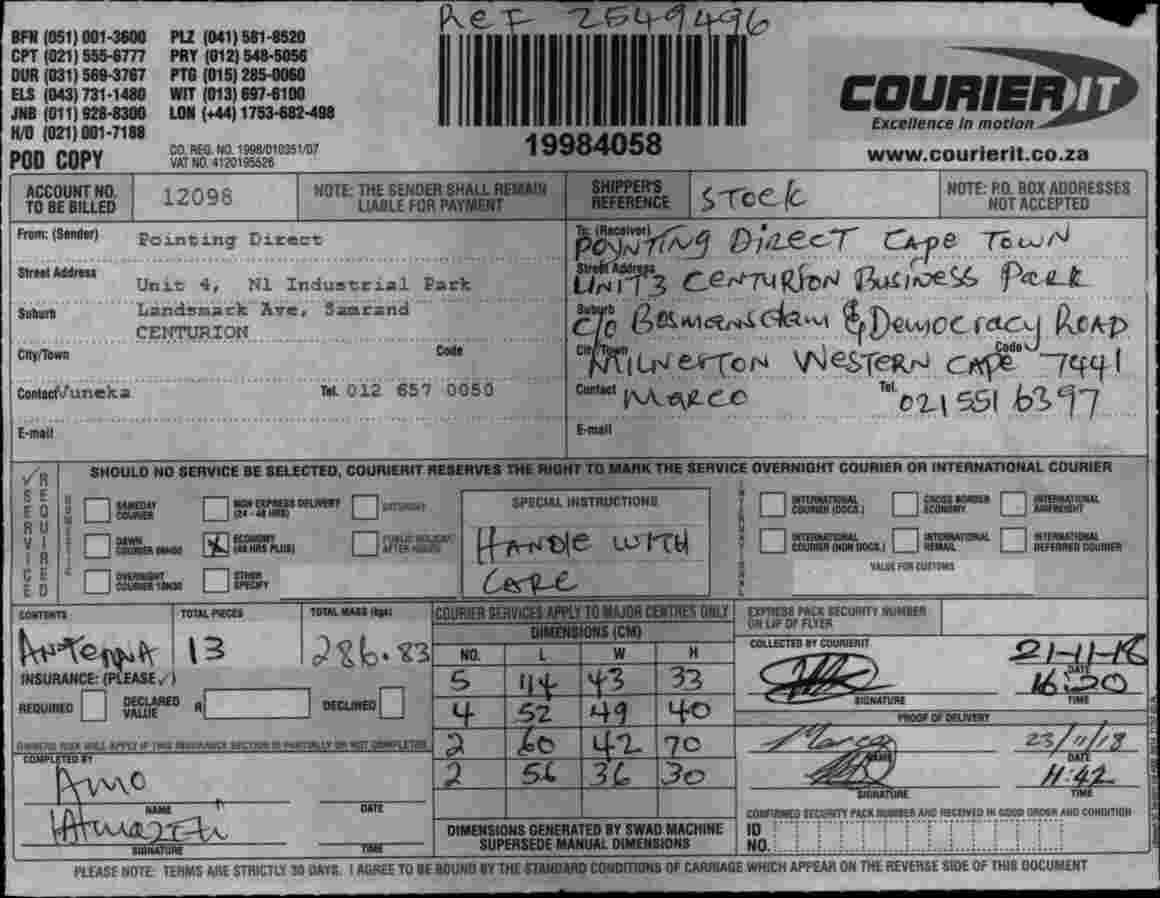 REF 2549496
BFN (051) 001-3600 PLZ (041) 581-8520
CPT (021) 555-6777 PRY (012) 548-5056
DUR (031) 569-3767 PTG (015) 285-0060
ELS (043) 731-1480 WIT (013) 697-6100
JNB (011) 928-8300 LON (+44) 1753-682-498
H/O (021) 001-7188
POD COPY
CO. REG. NO. 1998/010351/07
VAT NO. 4120195526
19984058
COURIER IT
Excellence in motion
www.courierit.co.za
ACCOUNT NO. TO BE BILLED 12098
NOTE: THE SENDER SHALL REMAIN LIABLE FOR PAYMENT
SHIPPER'S REFERENCE STOCK
NOTE: P.O. BOX ADDRESSES NOT ACCEPTED
From: (Sender) Pointing Direct
Street Address Unit 4, N1 Industrial Park
Suburb Landsmark Ave, Samrand
CENTURION
City/Town Code
Contact Vuneka Tel. 012 657 0050
E-mail
To: (Receiver) POYNTING DIRECT CAPE TOWN
Street Address UNIT 3 CENTURION BUSINESS PARK
Suburb c/o Bosmansdam & DEMOCRACY ROAD
City/Town MILNERTON WESTERN CAPE Code 7441
Contact MARCO Tel. 021 551 6397
E-mail
SERVICE REQUIRED
SHOULD NO SERVICE BE SELECTED, COURIERIT RESERVES THE RIGHT TO MARK THE SERVICE OVERNIGHT COURIER OR INTERNATIONAL COURIER
DOMESTIC
SAMEDAY COURIER
NON EXPRESS DELIVERY (24 - 48 HRS)
SATURDAY
DAWN COURIER
ECONOMY (48 HRS PLUS)
PUBLIC HOLIDAY AFTER HOURS
OVERNIGHT COURIER 10H30
OTHER SPECIFY
SPECIAL INSTRUCTIONS
HANDLE WITH
CARE
INTERNATIONAL
INTERNATIONAL COURIER (DOCS.)
CROSS BORDER ECONOMY
INTERNATIONAL AIRFREIGHT
INTERNATIONAL COURIER (NON DOCS.)
INTERNATIONAL REMAIL
INTERNATIONAL DEFERRED COURIER
VALUE FOR CUSTOMS
CONTENTS ANTENNA
TOTAL PIECES 13
TOTAL MASS (kgs) 286.83
INSURANCE: (PLEASE ✓)
REQUIRED DECLARED VALUE R DECLINED
OWNERS RISK WILL APPLY IF THIS INSURANCE SECTION IS PARTIALLY OR NOT COMPLETED
COMPLETED BY
Amo
NAME DATE
SIGNATURE TIME
COURIER SERVICES APPLY TO MAJOR CENTRES ONLY
DIMENSIONS (CM)
NO. L W H
5 114 43 33
4 52 49 40
2 60 42 70
2 56 36 30
DIMENSIONS GENERATED BY SWAD MACHINE
SUPERSEDE MANUAL DIMENSIONS
EXPRESS PACK SECURITY NUMBER ON LIP OF FLYER
COLLECTED BY COURIERIT
21-11-18
DATE
16:20
SIGNATURE TIME
PROOF OF DELIVERY
Marco 23/11/18
NAME DATE
11:42
SIGNATURE TIME
CONFIRMED SECURITY PACK NUMBER AND RECEIVED IN GOOD ORDER AND CONDITION
ID NO.
PLEASE NOTE: TERMS ARE STRICTLY 30 DAYS. I AGREE TO BE BOUND BY THE STANDARD CONDITIONS OF CARRIAGE WHICH APPEAR ON THE REVERSE SIDE OF THIS DOCUMENT